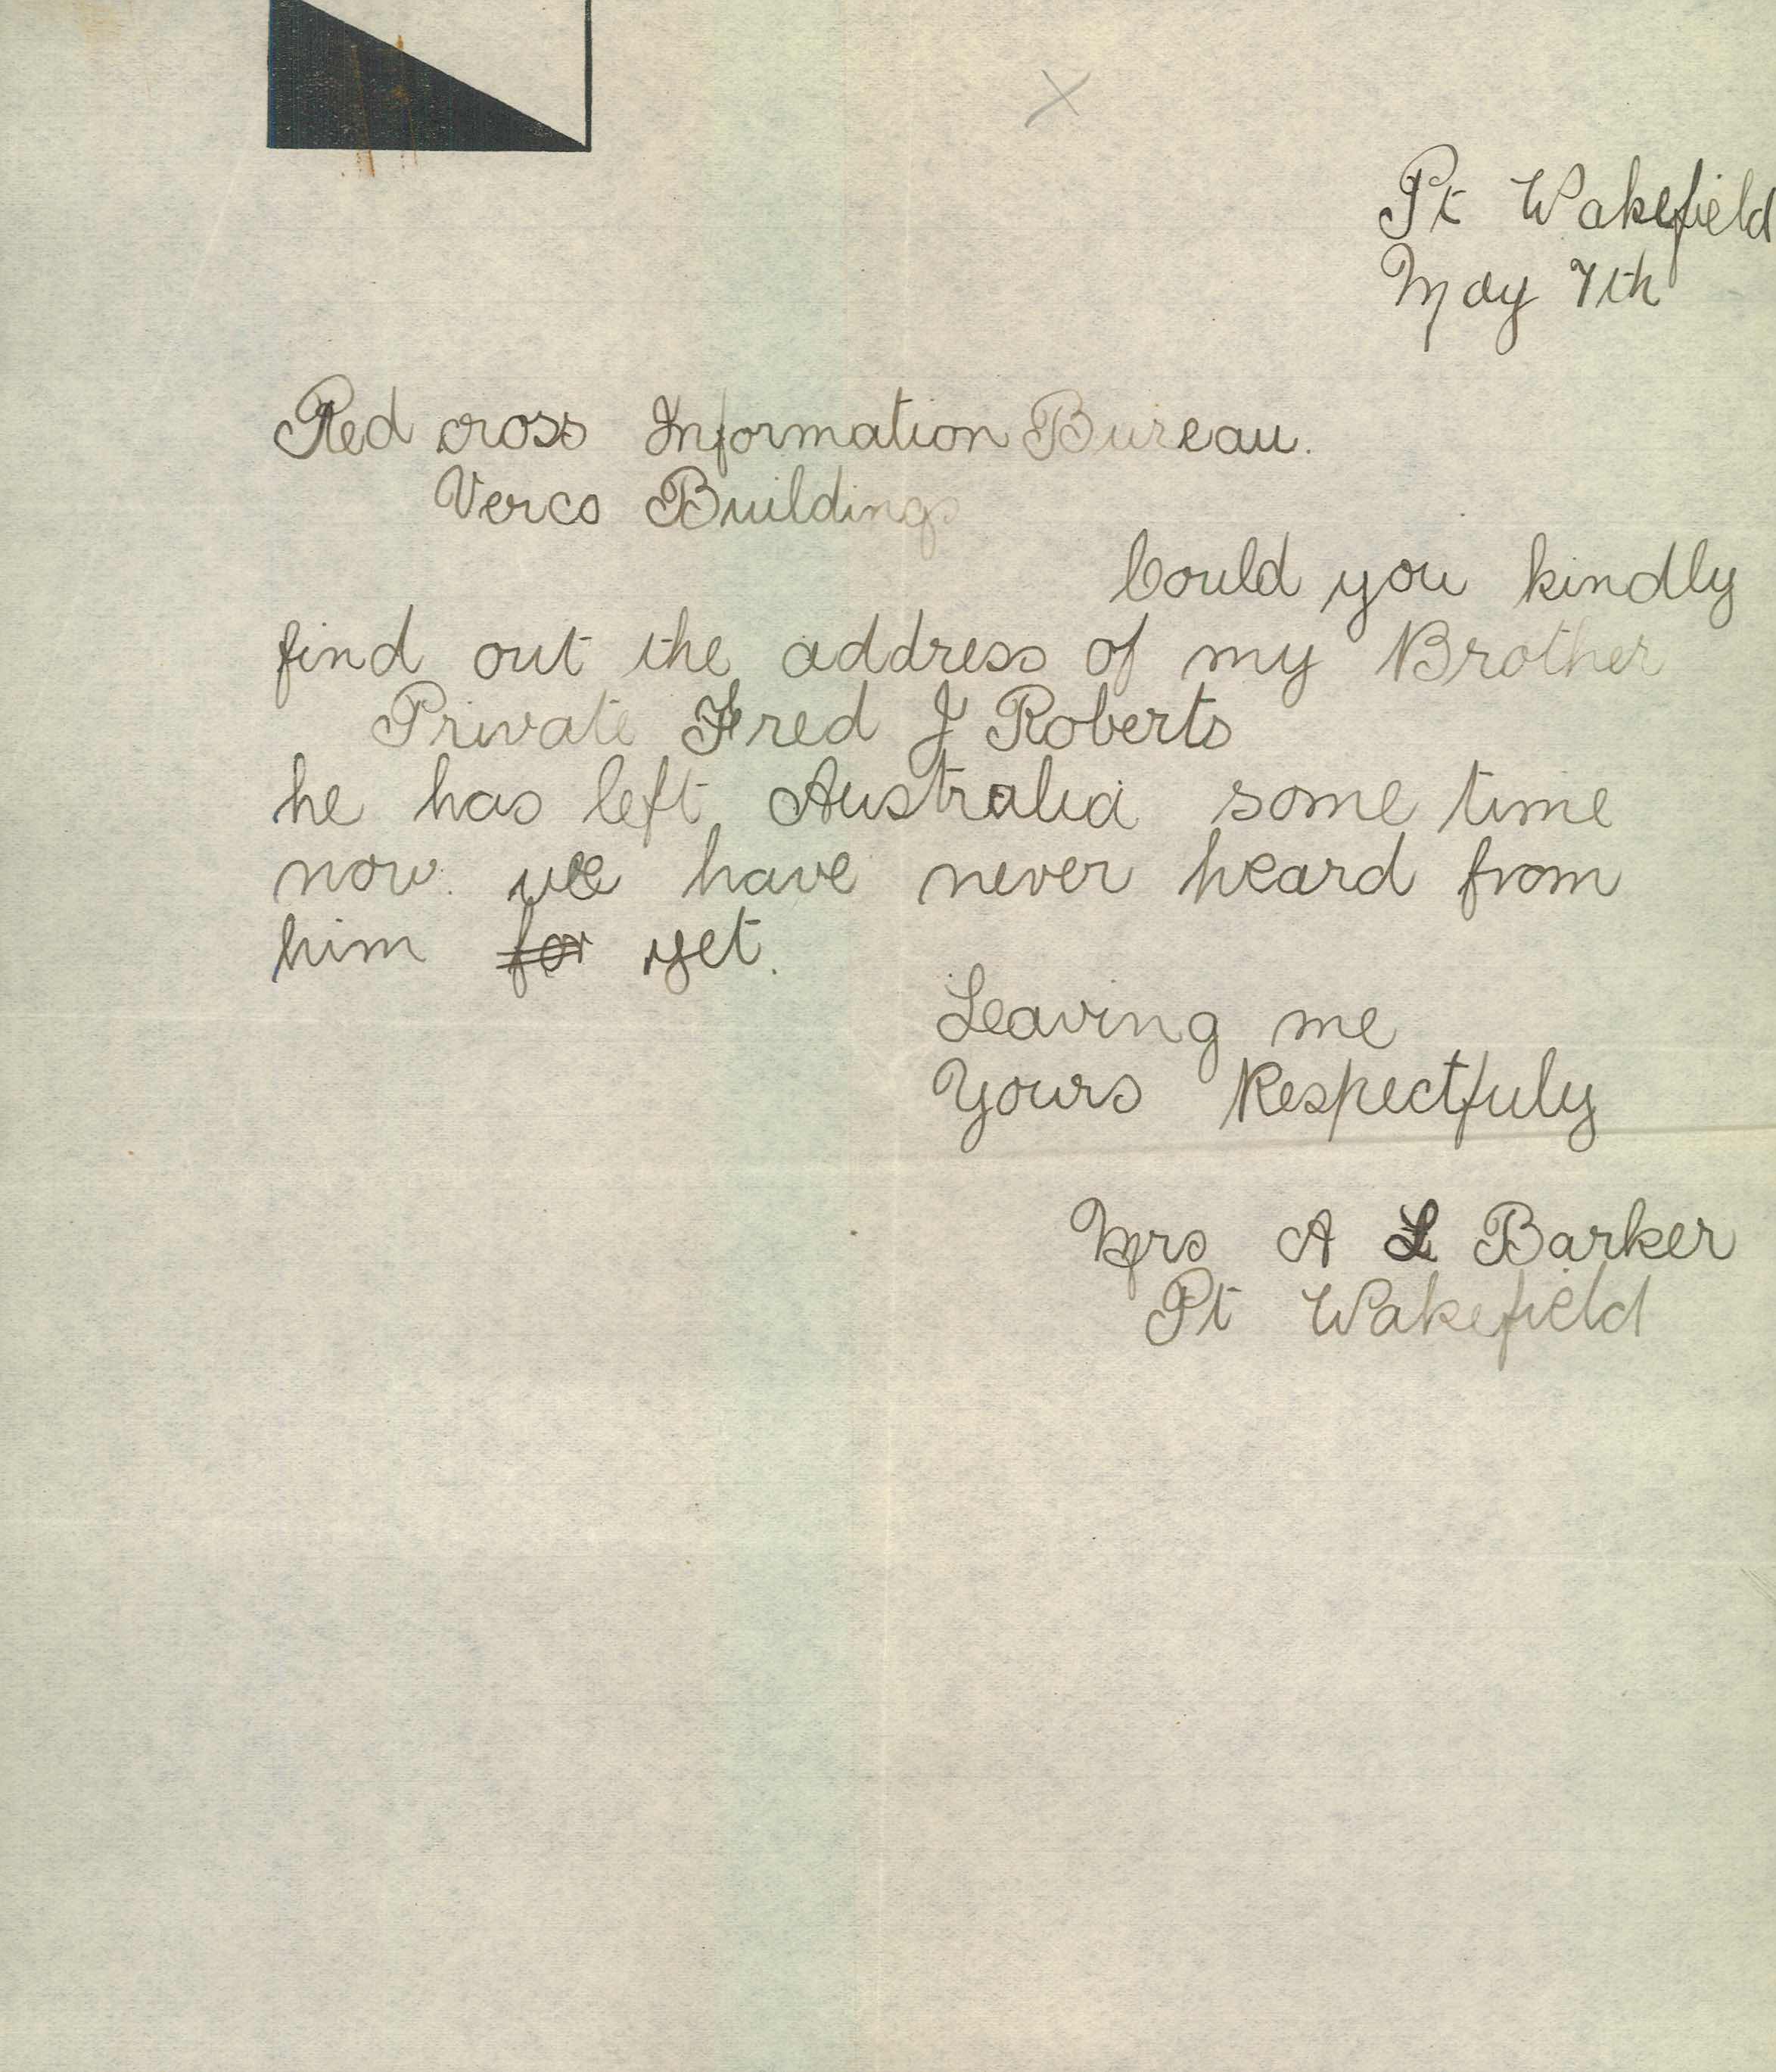 Pt Wakefield
May 7th
Red cross Information Bureau.
Verco Buildings
Could you kindly
find out the address of my Brother
Private Fred J Roberts
he has left Australia some time
now. we have never heard from
him for yet.
Leaving me
Yours Respectfuly
Mrs A L Barker
Pt Wakefield